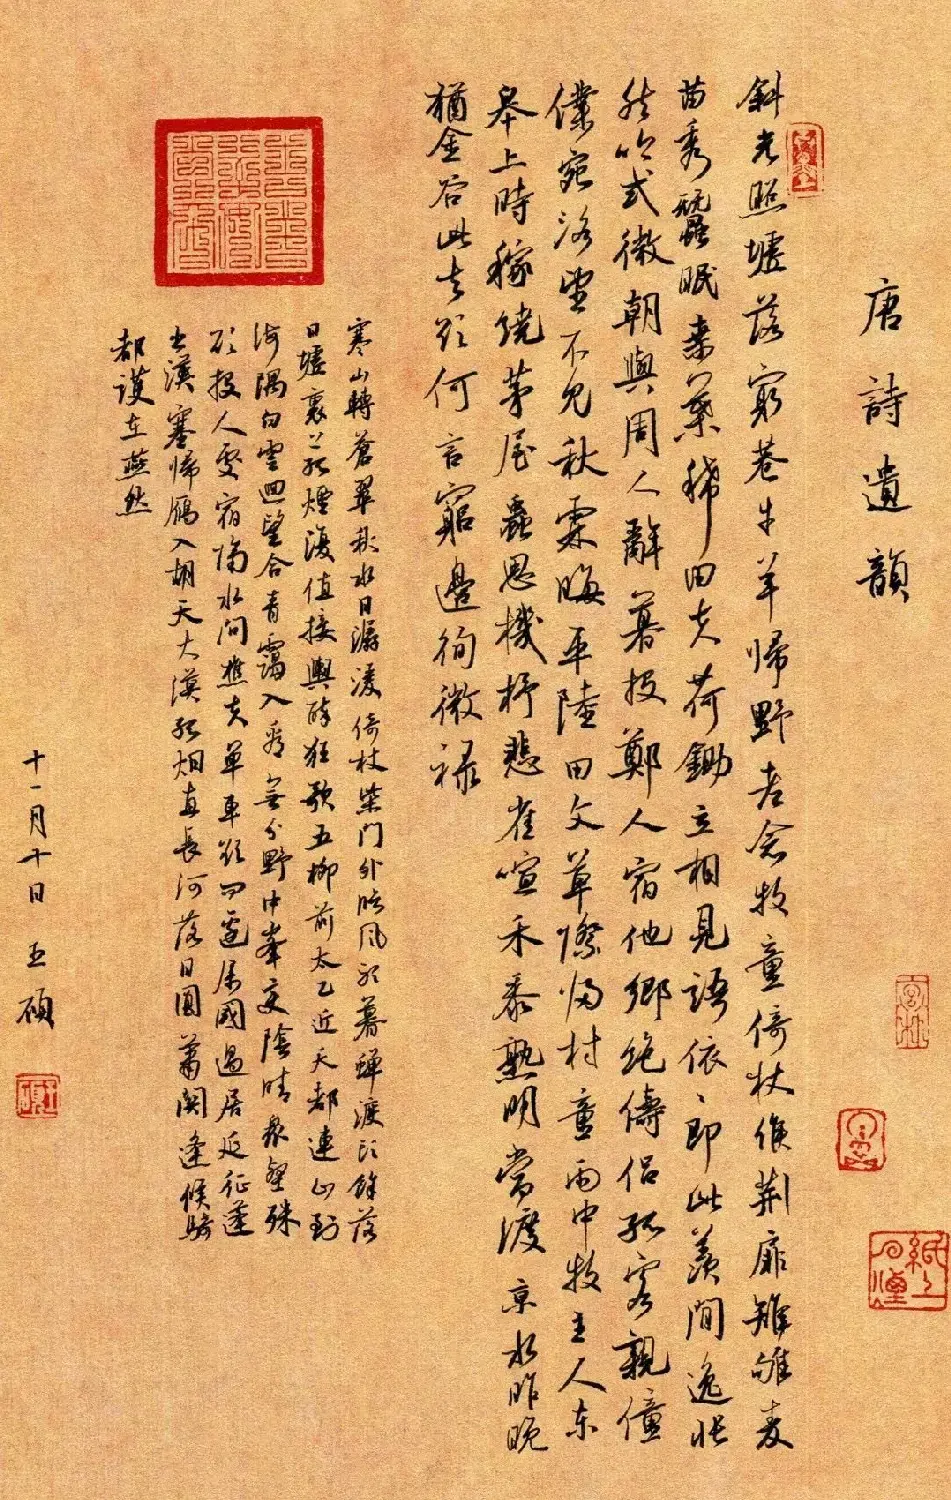 唐詩遺韻
斜光照墟落窮巷牛羊歸野老念牧童倚杖候荊扉雉雊麦
苗秀蠶眠桑葉稀田夫荷鋤立相見語依〻即此羨閒逸悵
然吟式微朝與周人辭暮投鄭人宿他鄉絕儔侶孤客親僮
僕宛洛望不見秋霖晦平陸田父草際歸村童雨中牧主人东
皋上時稼繞茅屋蟲思機杼悲雀喧禾黍熟明當渡京水昨晚
猶金谷此去欲何言窮邊徇微祿
寒山轉蒼翠秋水日潺湲倚杖柴門外臨風聽暮蟬渡頭餘落
日墟裏上孤煙復值接輿醉狂歌五柳前太乙近天都連山到
海隅白雲迴望合青靄入看無分野中峯变陰晴衆壑殊
欲投人處宿隔水問樵夫單車欲問邊屬國過居延征蓬
出漢塞歸雁入胡天大漠孤烟直長河落日圓蕭関逢候騎
都護在燕然
十一月十日 碩